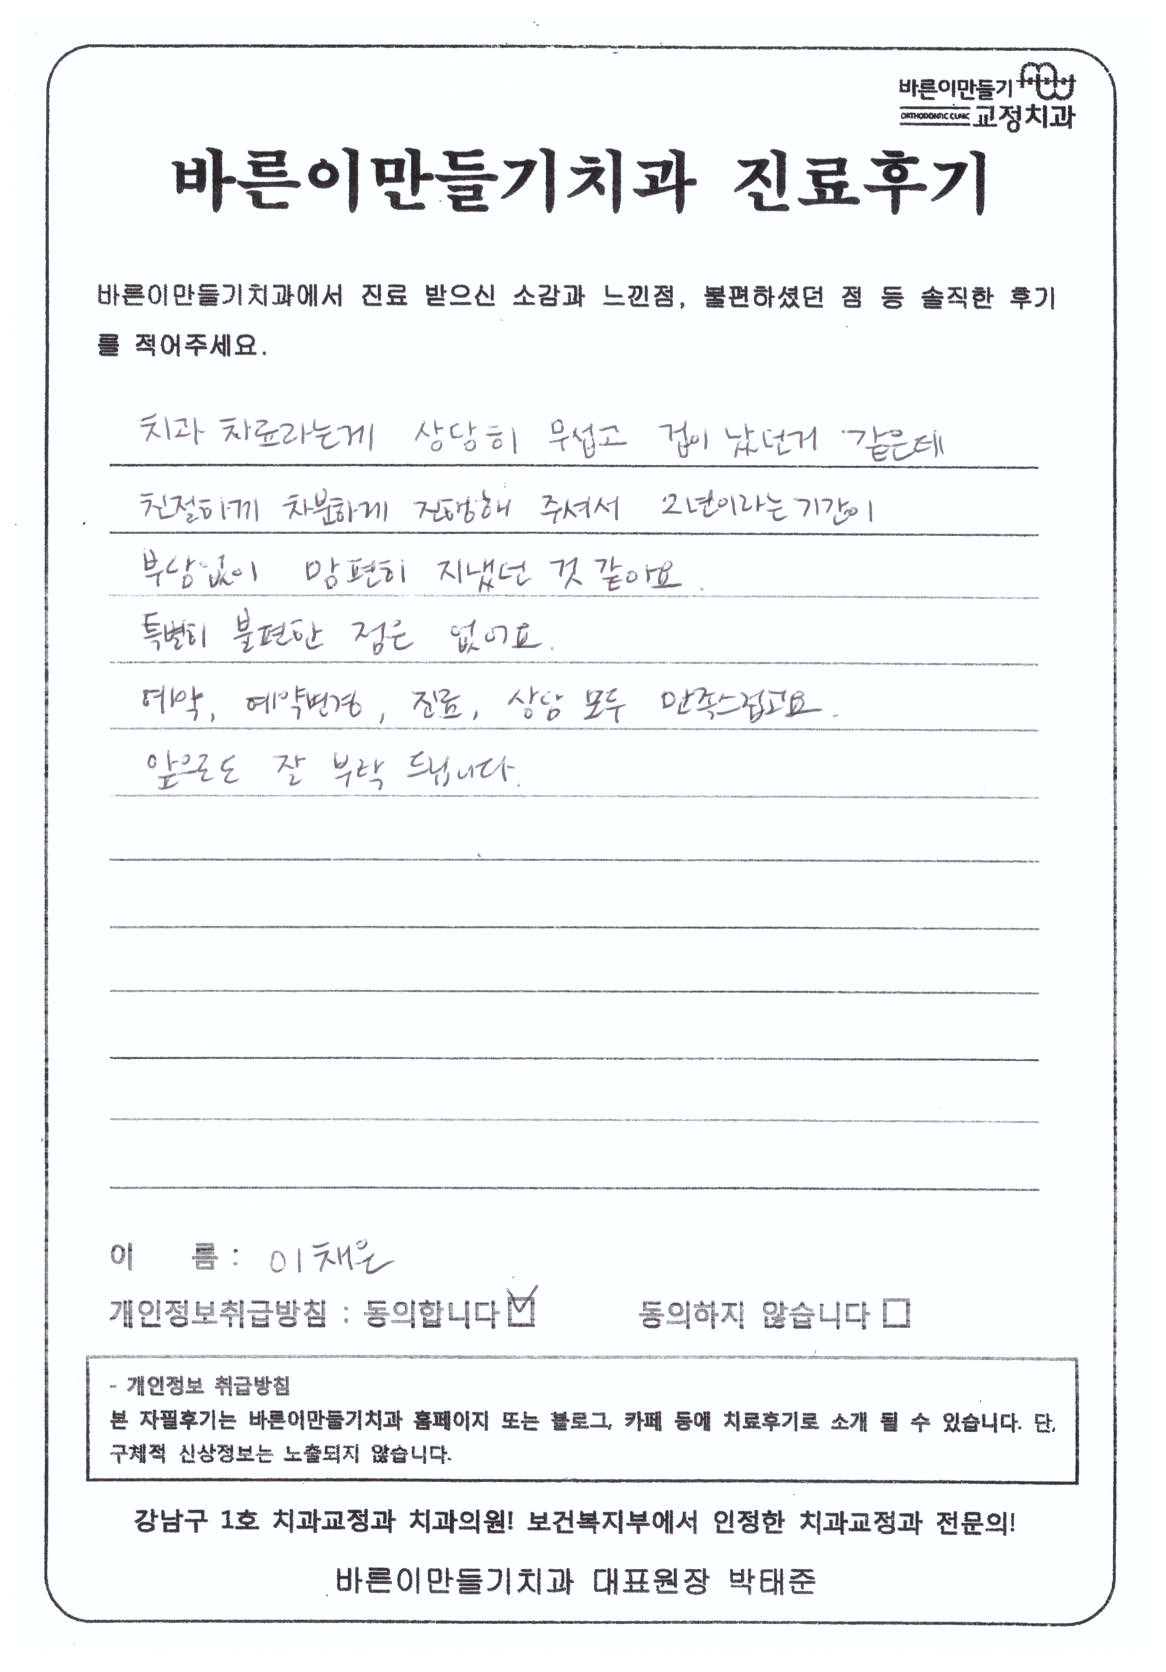 바른이만들기
ORTHODONTIC CLINIC 교정치과
바른이만들기치과 진료후기
바른이만들기치과에서 진료 받으신 소감과 느낀점, 불편하셨던 점 등 솔직한 후기
를 적어주세요.
치과 치료라는게 상당히 무섭고 겁이 났던거 같은데
친절하게 차분하게 진행해 주셔서 2년이라는 기간이
부담없이 맘편히 지냈던 것 같아요.
특별히 불편한 점은 없어요.
예약, 예약변경, 진료, 상담 모두 만족스럽고요.
앞으로도 잘 부탁 드립니다.
이 름 : 이채은
개인정보취급방침 : 동의합니다 동의하지 않습니다
- 개인정보 취급방침
본 자필후기는 바른이만들기치과 홈페이지 또는 블로그, 카페 등에 치료후기로 소개 될 수 있습니다. 단,
구체적 신상정보는 노출되지 않습니다.
강남구 1호 치과교정과 치과의원! 보건복지부에서 인정한 치과교정과 전문의!
바른이만들기치과 대표원장 박태준